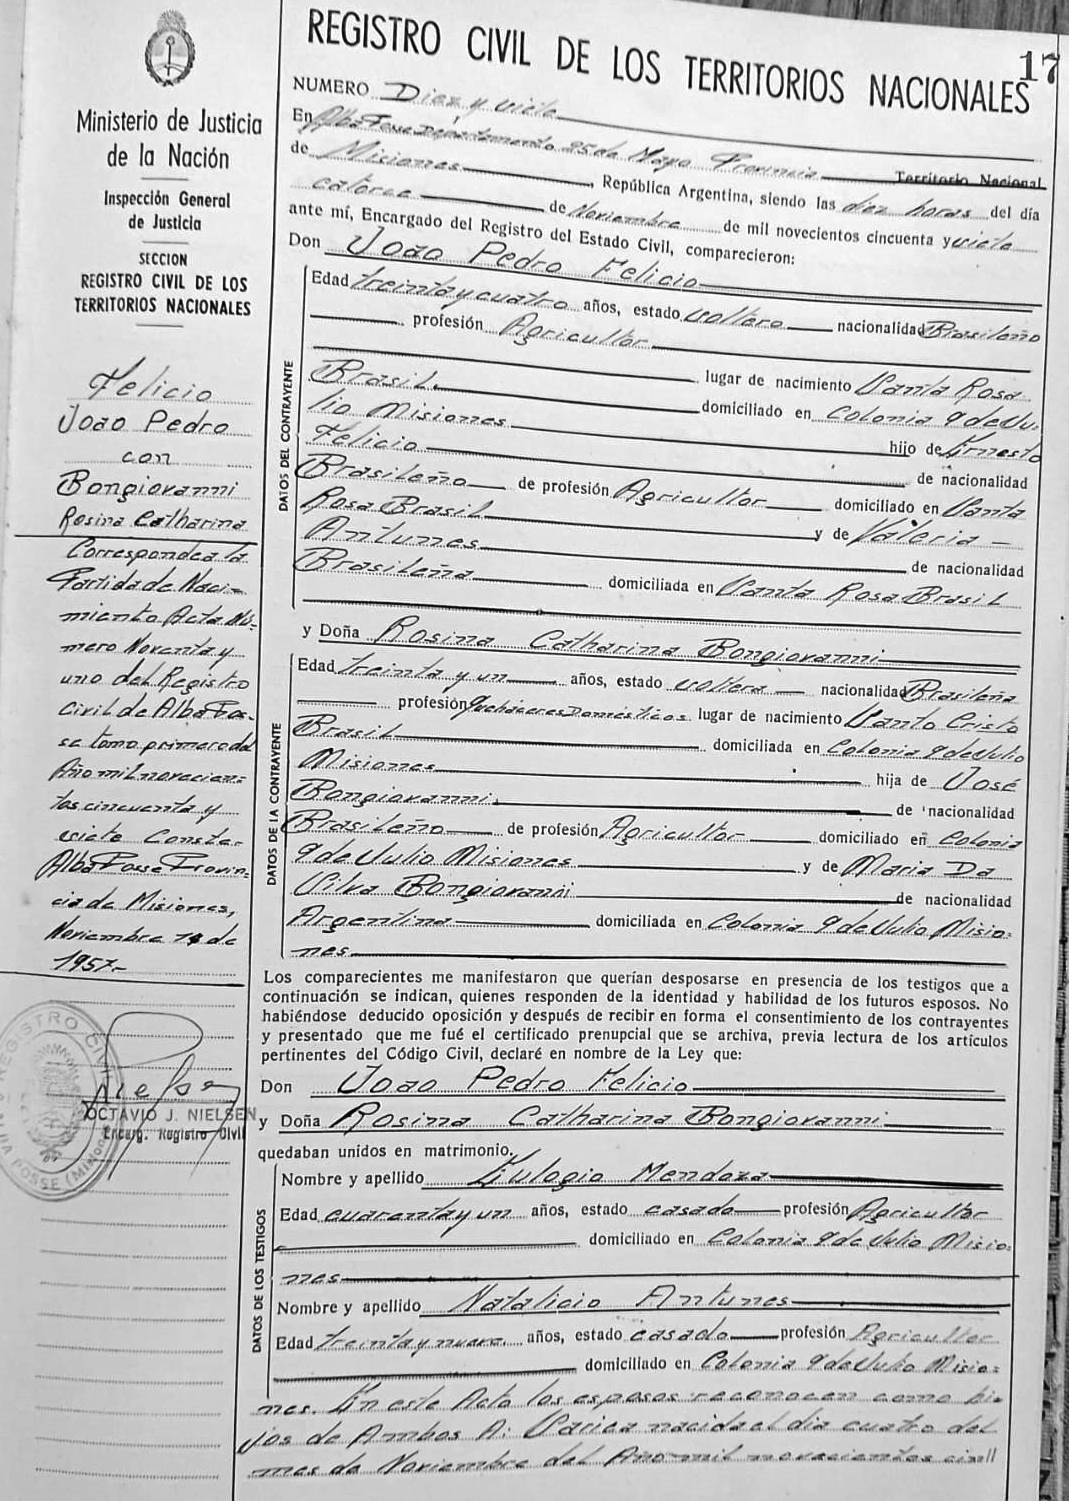 REGISTRO CIVIL DE LOS TERRITORIOS NACIONALES
17
Ministerio de Justicia
de la Nación
Inspección General
de Justicia
SECCION
REGISTRO CIVIL DE LOS
TERRITORIOS NACIONALES
Felicio
Joao Pedro
con
Bongiovanni
Rosina Catharina
Corresponde a la
Partida de Naci-
miento Acta Nú-
mero Noventa y
uno del Registro
Civil de Alba Pos-
se tomo primero del
Año mil novecien-
tos cincuenta y
siete Conste.
Alba Posse Provin-
cia de Misiones,
Noviembre 14 de
1957.-
OCTAVIO J. NIELSEN
Encarg. Registro Civil
REGISTRO CIVIL
ALBA POSSE (Misiones)
NUMERO Diez y siete
En Alba Posse Departamento 25 de Mayo Provincia Territorio Nacional
de Misiones, República Argentina, siendo las diez horas del día
catorce de Noviembre de mil novecientos cincuenta y siete
ante mí, Encargado del Registro del Estado Civil, comparecieron:
Don Joao Pedro Felicio
DATOS DEL CONTRAYENTE
Edad treinta y cuatro años, estado soltero nacionalidad Brasileño
profesión Agricultor
lugar de nacimiento Santa Rosa
Brasil domiciliado en Colonia 9 de Ju-
lio Misiones hijo de Ernesto
Felicio de nacionalidad
Brasileño de profesión Agricultor domiciliado en Santa
Rosa Brasil y de Valeria -
Antunes de nacionalidad
Brasileña domiciliada en Santa Rosa Brasil
y Doña Rosina Catharina Bongiovanni
DATOS DE LA CONTRAYENTE
Edad treinta y un años, estado soltera nacionalidad Brasileña
profesión Quehaceres Domésticos lugar de nacimiento Santo Cristo
Brasil domiciliada en Colonia 9 de Julio
Misiones hija de José
Bongiovanni de nacionalidad
Brasileño de profesión Agricultor domiciliado en Colonia
9 de Julio Misiones y de Maria Da
Silva Bongiovanni de nacionalidad
Argentina domiciliada en Colonia 9 de Julio Misio-
nes
Los comparecientes me manifestaron que querían desposarse en presencia de los testigos que a
continuación se indican, quienes responden de la identidad y habilidad de los futuros esposos. No
habiéndose deducido oposición y después de recibir en forma el consentimiento de los contrayentes
y presentado que me fué el certificado prenupcial que se archiva, previa lectura de los artículos
pertinentes del Código Civil, declaré en nombre de la Ley que:
Don Joao Pedro Felicio
y Doña Rosina Catharina Bongiovanni
quedaban unidos en matrimonio.
DATOS DE LOS TESTIGOS
Nombre y apellido Eulogio Mendoza
Edad cuarenta y un años, estado casado profesión Agricultor
domiciliado en Colonia 9 de Julio Misio-
nes
Nombre y apellido Natalicio Antunes
Edad treinta y nueve años, estado casado profesión Agricultor
domiciliado en Colonia 9 de Julio Misio-
nes. En este Acto los esposos reconocen como hi-
jos de Ambos A: nacida el dia cuatro del
mes de Noviembre del Año mil novecientos